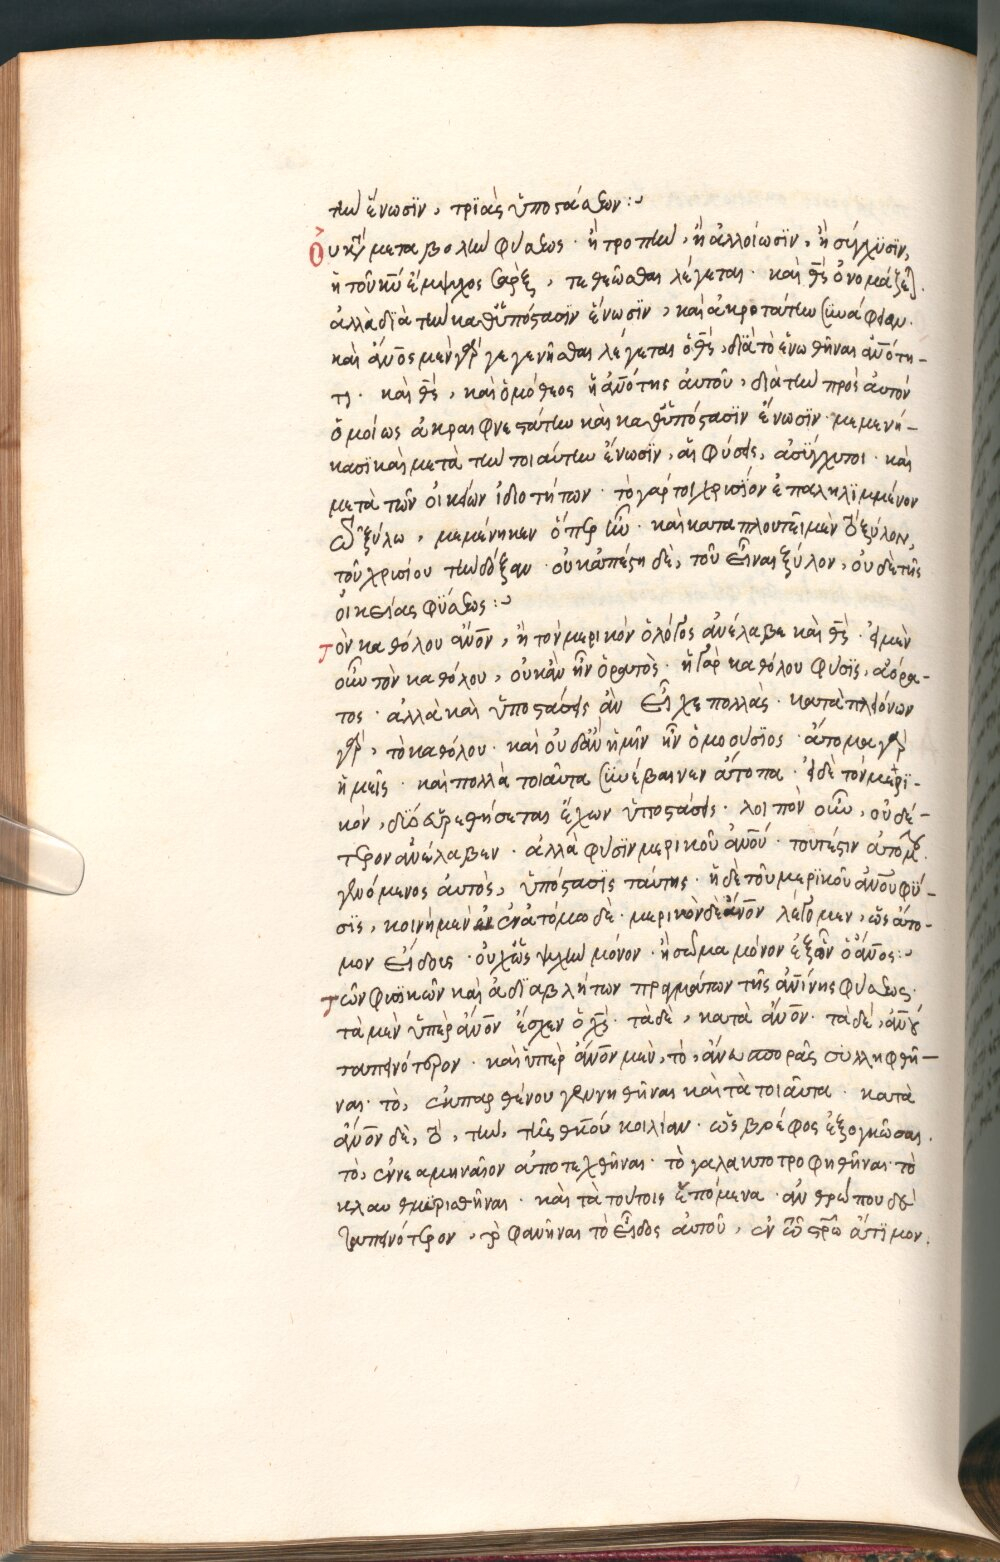 τὴν ἕνωσϊν, τρϊὰς ὑποστάσεων:
Οὐ κατὰ μεταβολὴν φύσεως· ἢ τροπὴν, ἢ ἀλλοίωσϊν, ἢ σύγχϋσϊν,
ἡ τοῦ κυ̅ ἔμψυχος σὰρξ, τεθεῶσθαι λέγεται· καὶ θς̅ ὀνομάζεται.
ἀλλὰ διὰ τὴν καθ' ὑπόστασϊν ἕνωσϊν, καὶ ἀκροτάτην συνάφειαν.
καὶ ἄνο̅ς μὲν γὰρ γεγενῆσθαι λέγεται ὁ θς̅, διὰ τὸ ἑνωθῆναι ἀνο̅τη-
τι· καὶ θς̅, καὶ ὁμόθεος ἡ ἀνο̅της αὐτοῦ, διὰ τὴν πρὸς αὐτὸν
ὁμοίως ἀκραιφνεστάτην καὶ καθ' ὑπόστασϊν ἕνωσϊν· μεμενή-
κασϊ καὶ μετὰ τὴν τοιαύτην ἕνωσϊν, αἱ φύσεις, ἀσϋγχυτοι· καὶ
μετὰ τῶν οἰκείων ἰδιοτήτων· τὸ γάρ τοι χρυσίον ἐπαληλϊμμένον
τῶ ξύλω, μεμένηκεν ὅπερ ἦν· καὶ καταπλουτεῖ μὲν τὸ ξύλον,
τοῦ χρυσίου τὴν δόξαν· οὐκ ἀπέστη δὲ, τοῦ εἶναι ξύλον, οὐδὲ τῆς
οἰκείας φύσεως:
Τὸν καθόλου ἄνο̅ν, ἢ τὸν μερικὸν ὁ λόγος ἀνέλαβε καὶ θς̅· εἰ μὲν
οὖν τὸν καθόλου, οὐκ ἂν ἦν ὁρατὸς· ἡ γὰρ καθόλου φύσϊς, ἀόρα-
τος· ἀλλὰ καὶ ὑποστάσεις ἂν εἶχε πολλὰς· κατὰ πλειόνων
γὰρ, τὸ καθόλου· καὶ οὐδ' ἂν ἡμῖν ἦν ὁμοούσϊος· ἄτομα γὰρ
ἡμεῖς· καὶ πολλὰ τοιαῦτα συνέβαινεν ἄτοπα· εἰ δὲ τὸν μερϊ-
κόν, δύο εὑρεθήσεται ἔχων ὑποστάσεις· λοιπὸν οὖν, οὐδέ-
τερον ἀνέλαβεν· ἀλλὰ φύσϊν μερικοῦ ἀνο̅υ· τουτέστιν ἀτόμου.
γενόμενος αὐτὸς, ὑπόστασϊς ταύτης· ἡ δὲ τοῦ μερϊκοῦ ἀνο̅υ φύ-
σϊς, κοινὴ μὲν ἐν ἀτόμω δὲ· μερικὸν δὲ ἄνο̅ν λέγομεν, ὡς ἄτο-
μον εἶδους· οὐχ ὡς ψυχὴν μόνον· ἢ σῶμα μόνον ἐξ ὧν ὁ ἄνο̅ς:
Τῶν φυσϊκῶν καὶ ἀδϊαβλήτων πραγμάτων τῆς ἀνί̅νης φύσεως.
τὰ μὲν ὑπὲρ ἄνο̅ν ἔσχεν ὁ χς̅· τὰ δὲ, κατὰ ἄνο̅ν· τὰ δὲ, ἀνο̅υ
ταπεινότερον· καὶ ὑπὲρ ἄνο̅ν μὲν, τὸ, ἄνευ σπορᾶς συλληφθῆ-
ναι· τὸ, ἐκ παρθένου γεννηθῆναι καὶ τὰ τοιαῦτα· κατὰ
ἄνο̅ν δὲ, τὸ, τὴν, τῆς θκο̅υ κοιλίαν· ὡς βρέφος ἐξογκῶσαι.
τὸ, ἐννεαμηναῖον ἀποτεχθῆναι· τὸ γαλακτοτροφηθῆναι· τὸ
κλαυθμϋρισθῆναι· καὶ τὰ τούτοις ἑπόμενα· ἀνθρώπου δὲ
ταπεινότερον, τὸ φανῆναι τὸ εἶδος αὐτοῦ, ἐν τῶ στρῶ ἄτϊμον.